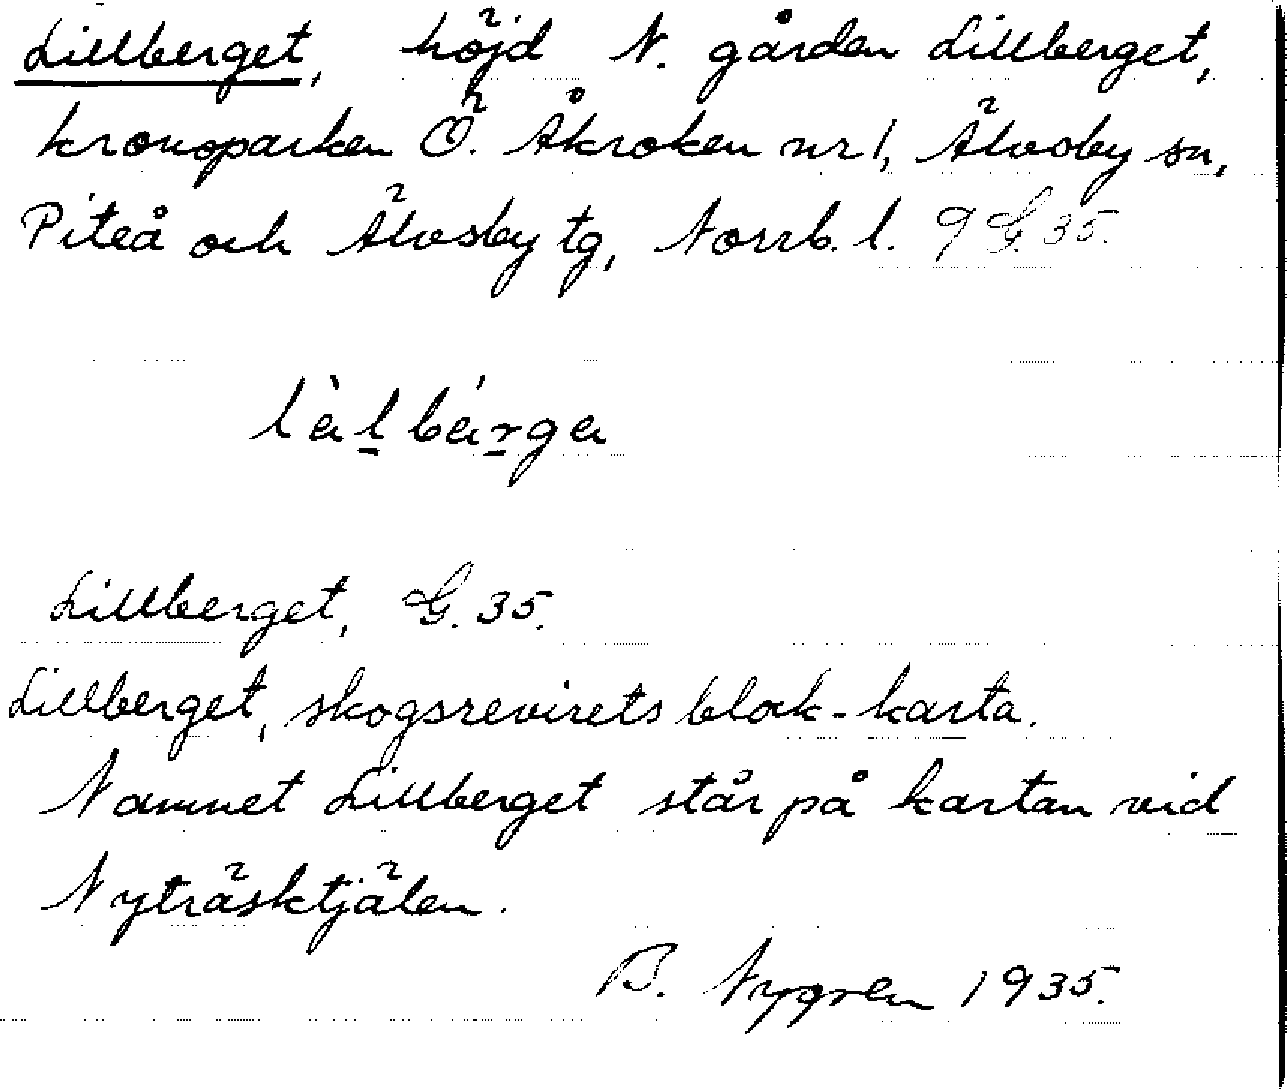 Lillberget, höjd N. gården Lillberget,
kronoparken Ö. Åkroken nr 1, Älvsby sn,
Piteå och Älvsby tg, Norrb. l. 9 G. 35.
Lillberget, G. 35.
Lillberget, skogsrevirets block-karta.
Namnet Lillberget står på kartan vid
Nyträsktjälen.
B. Nygren 1935.